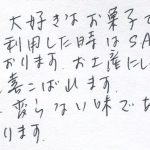 大好きなお菓子で
利用した時はSA
おります.お土産にし
喜こばれます.
変らない味で
ります.